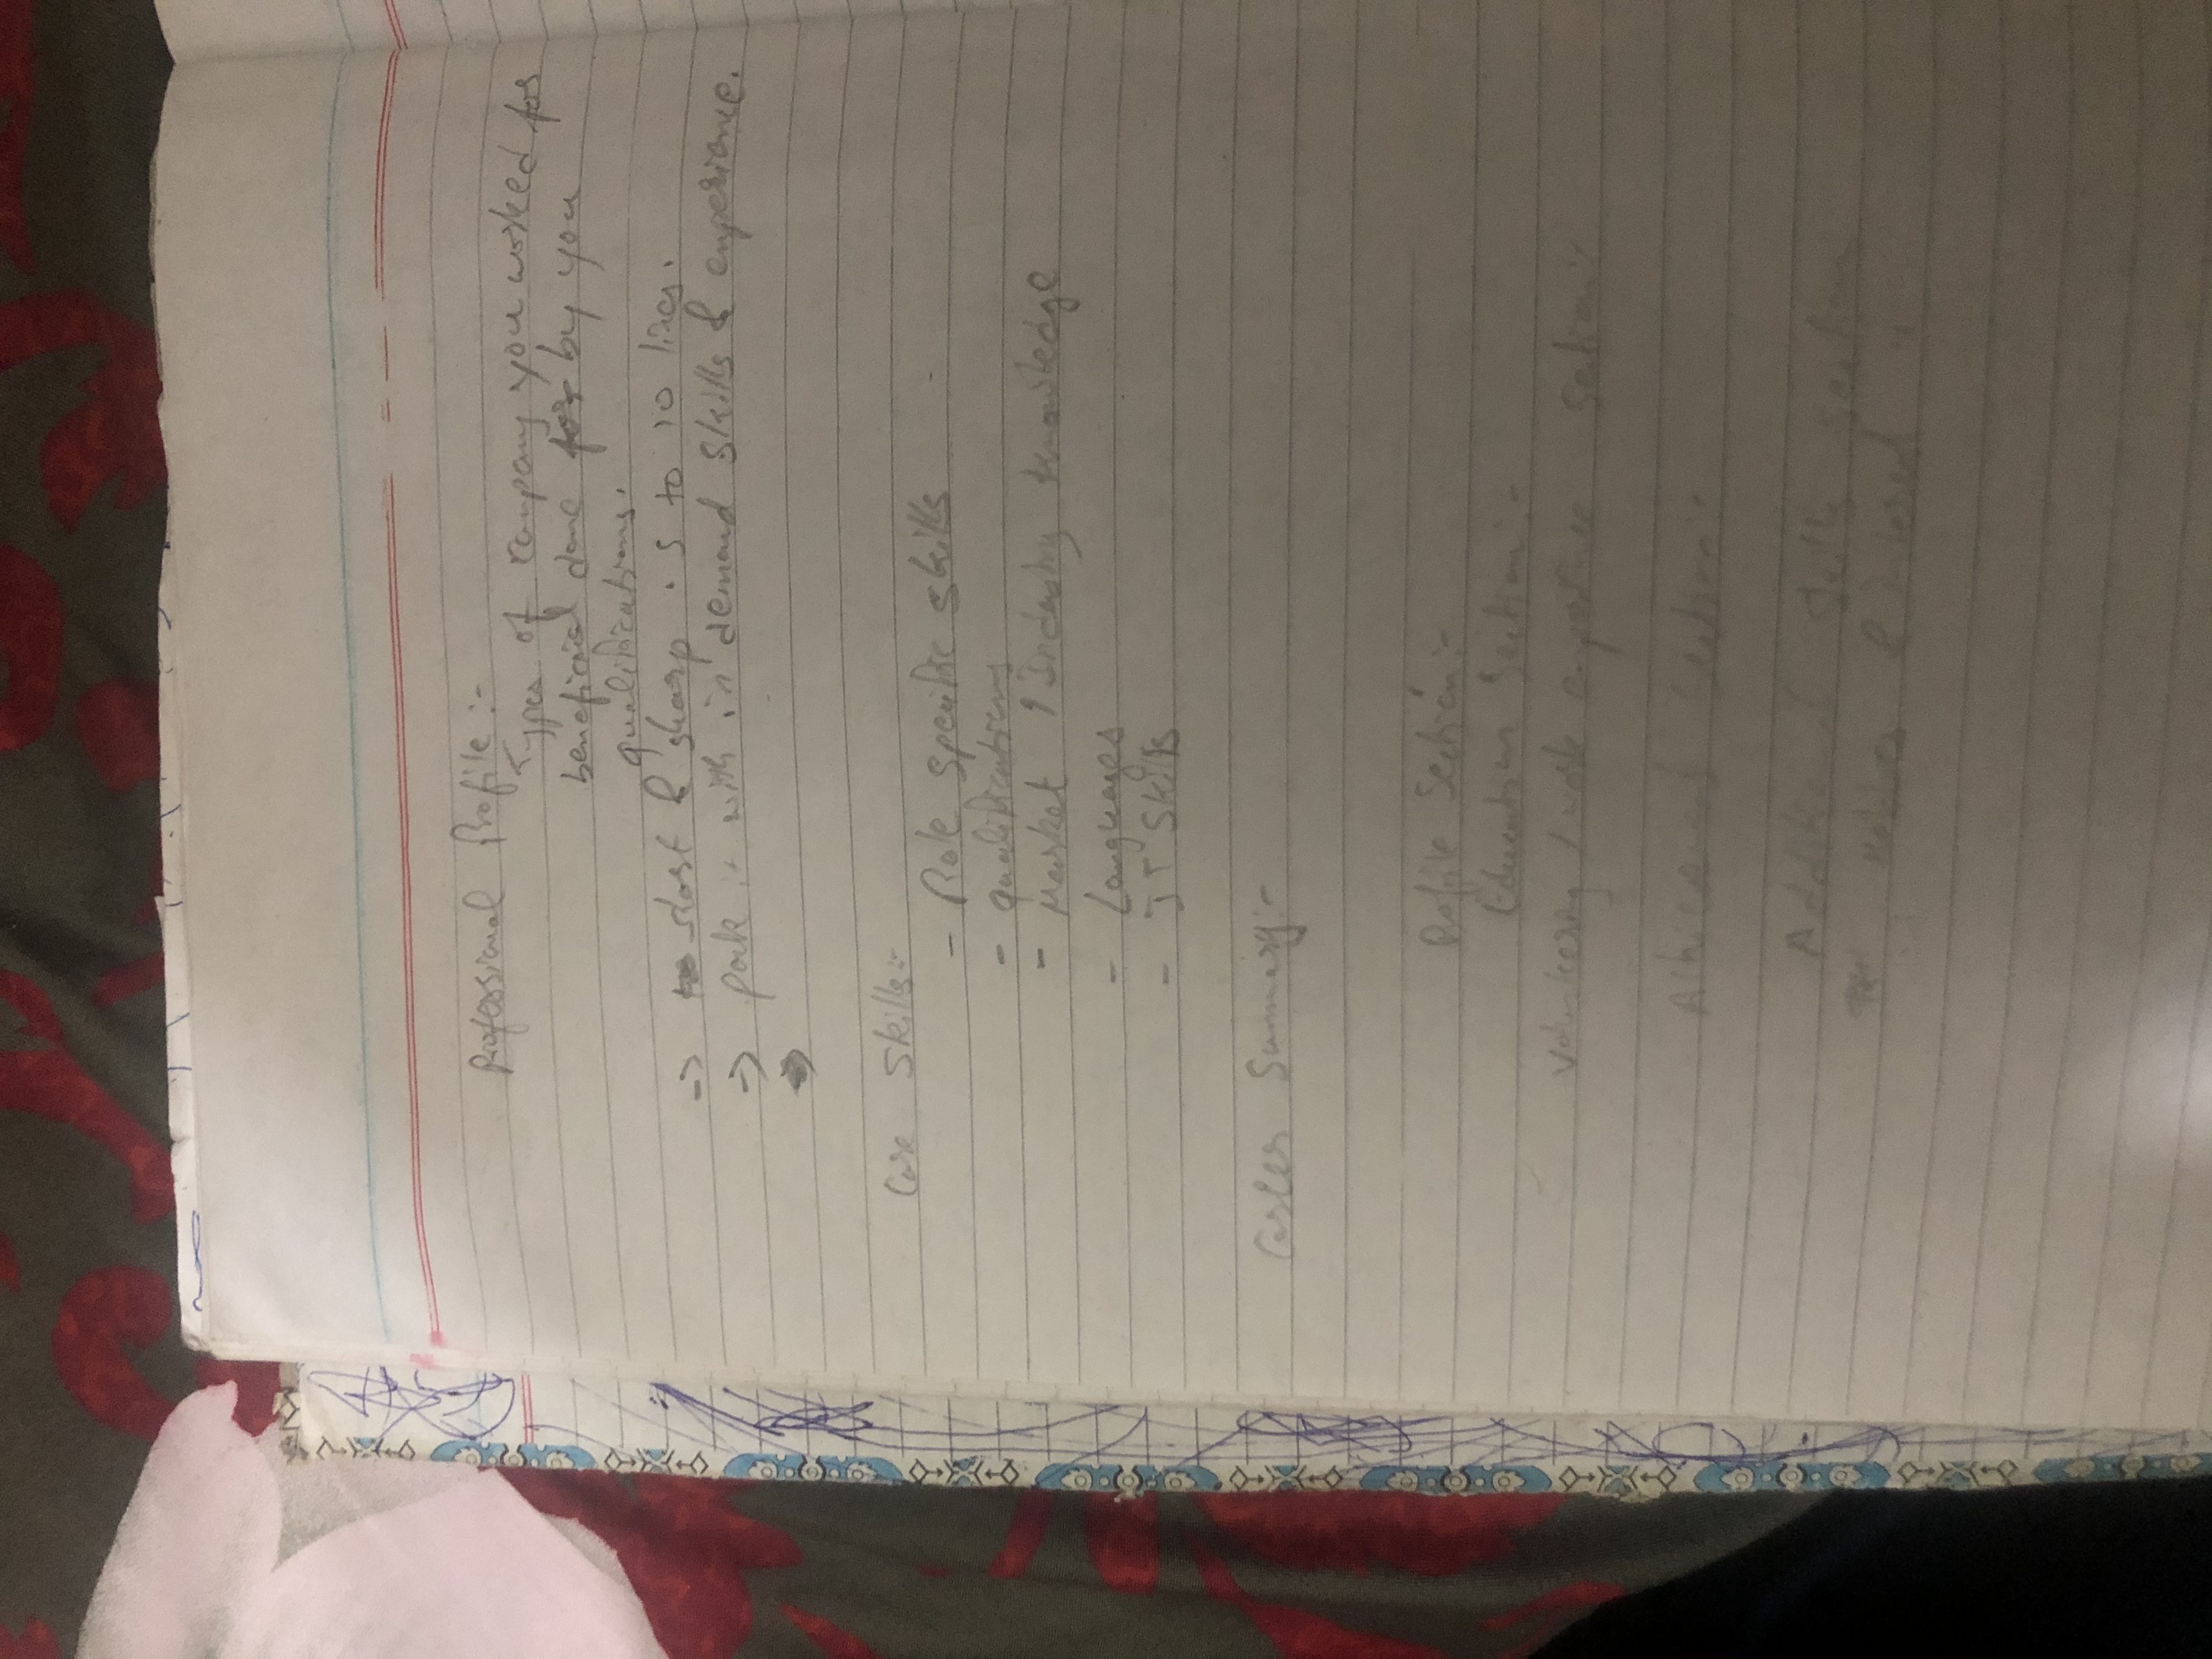 Professional Profile :-
Types of company you worked for
beneficial done for by you
qualifications.
-> start & sharp is to 10 lines.
-> pack it with in demand skills & experience.
Core Skills:-
- Role specific skills
- qualifications
- Market / Industry knowledge
- Languages
- IT Skills
Career Summary:-
Profile Section:-
Education Section:-
/ work experience section
Section:-
Additional Skills section